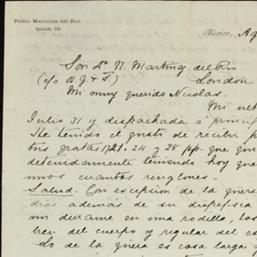 Pablo Martínez del Río
México, Ag
Sor Dn N. Martínez del Río
(c/o B. J. & F.) London
Mi muy querido Nicolas.
Mi ulti
Julio 31 y despachada á princip
He tenido el gusto de recibir
tus gratas 17, 21, 24 y 28 pp. que
detenidamente teniendo hoy que
unos cuantos renglones.
Salud. Con escepcion de la
dias ademas de su dispepsia
un derrame en una rodilla, los
bien del cuerpo y regular del es
Lo de la es cosa larga y